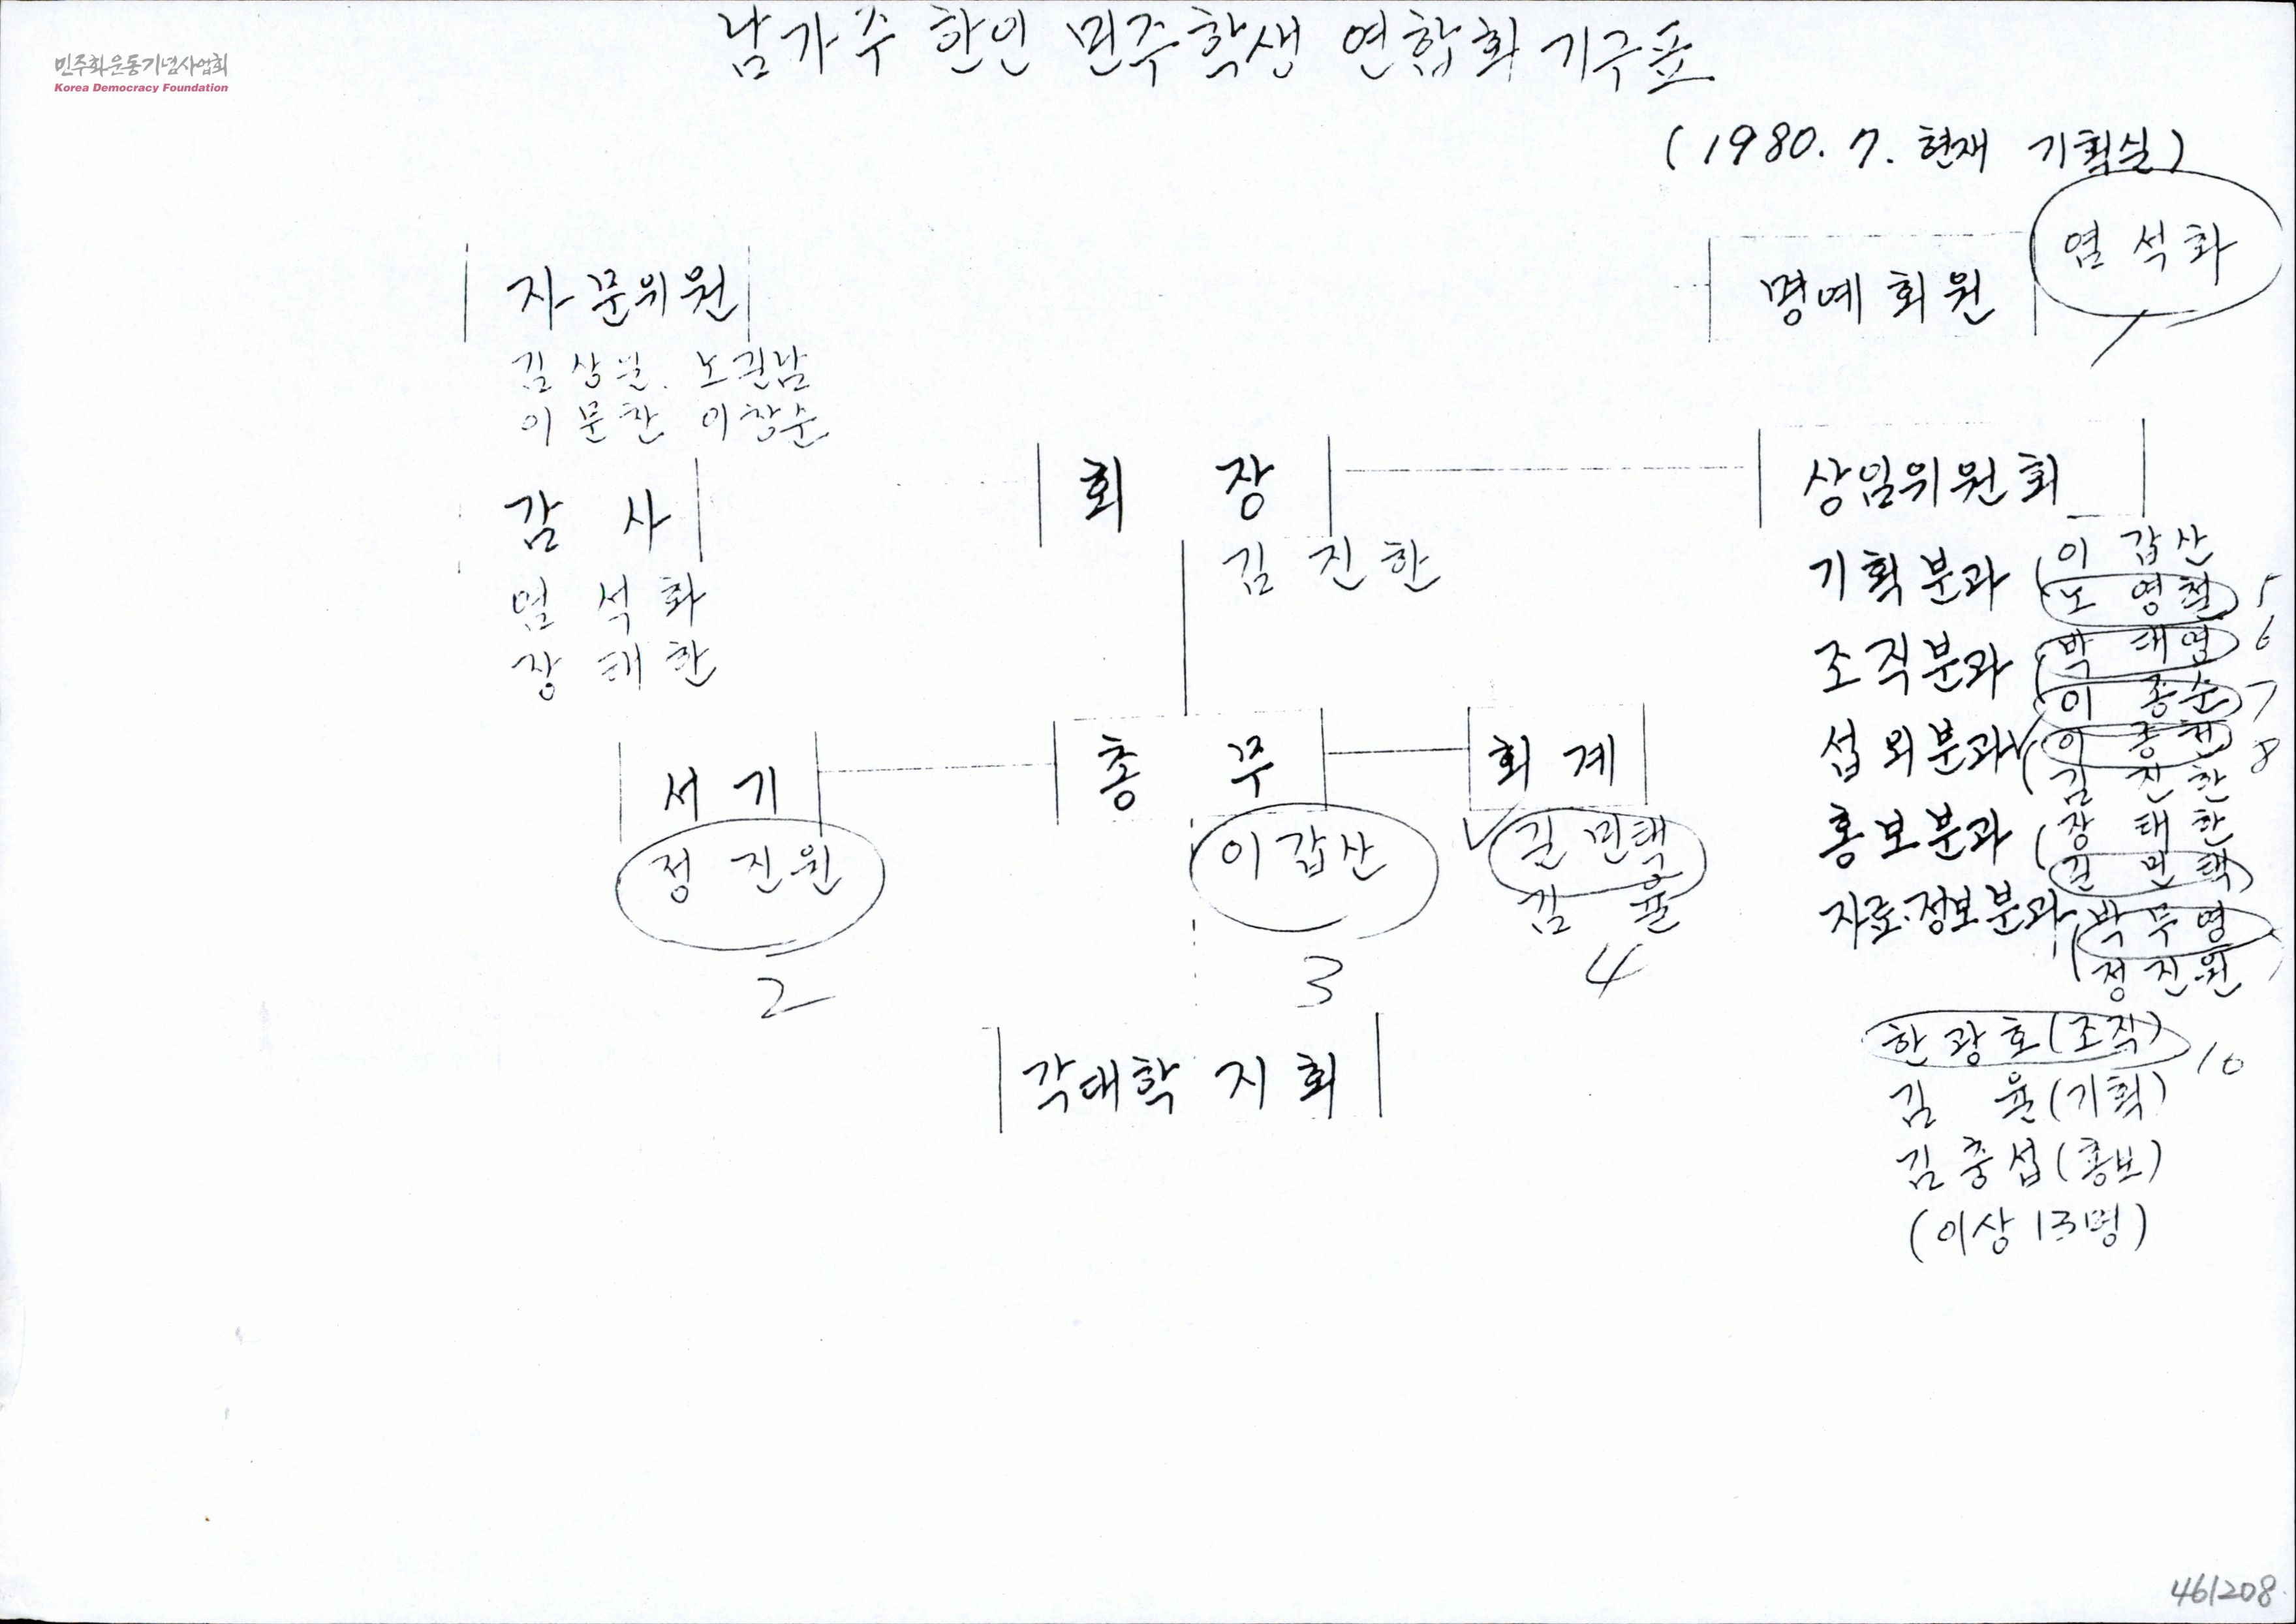 남가주 한인 민주학생 연합회 기구표
민주화운동기념사업회
Korea Democracy Foundation
(1980. 7. 현재 기획실)
염석화
명예회원
자문위원
김상일. 노길남
이문한 이창순
회 장
김진한
상임위원회
감 사
염석화
장태한
기획분과 (이갑산
노영철 5
조직분과 (박태영 6
이종순 7
섭외분과 ( 8
김진한
홍보분과 (장태한
길민택
자료·정보분과 (박무영
정진원
서기
정진원
2
총 무
이갑산
3
회계
길민택
김 율
4
각대학 지회
한광호(조직) 10
김 율(기획)
김충섭(홍보)
(이상 13명)
461208